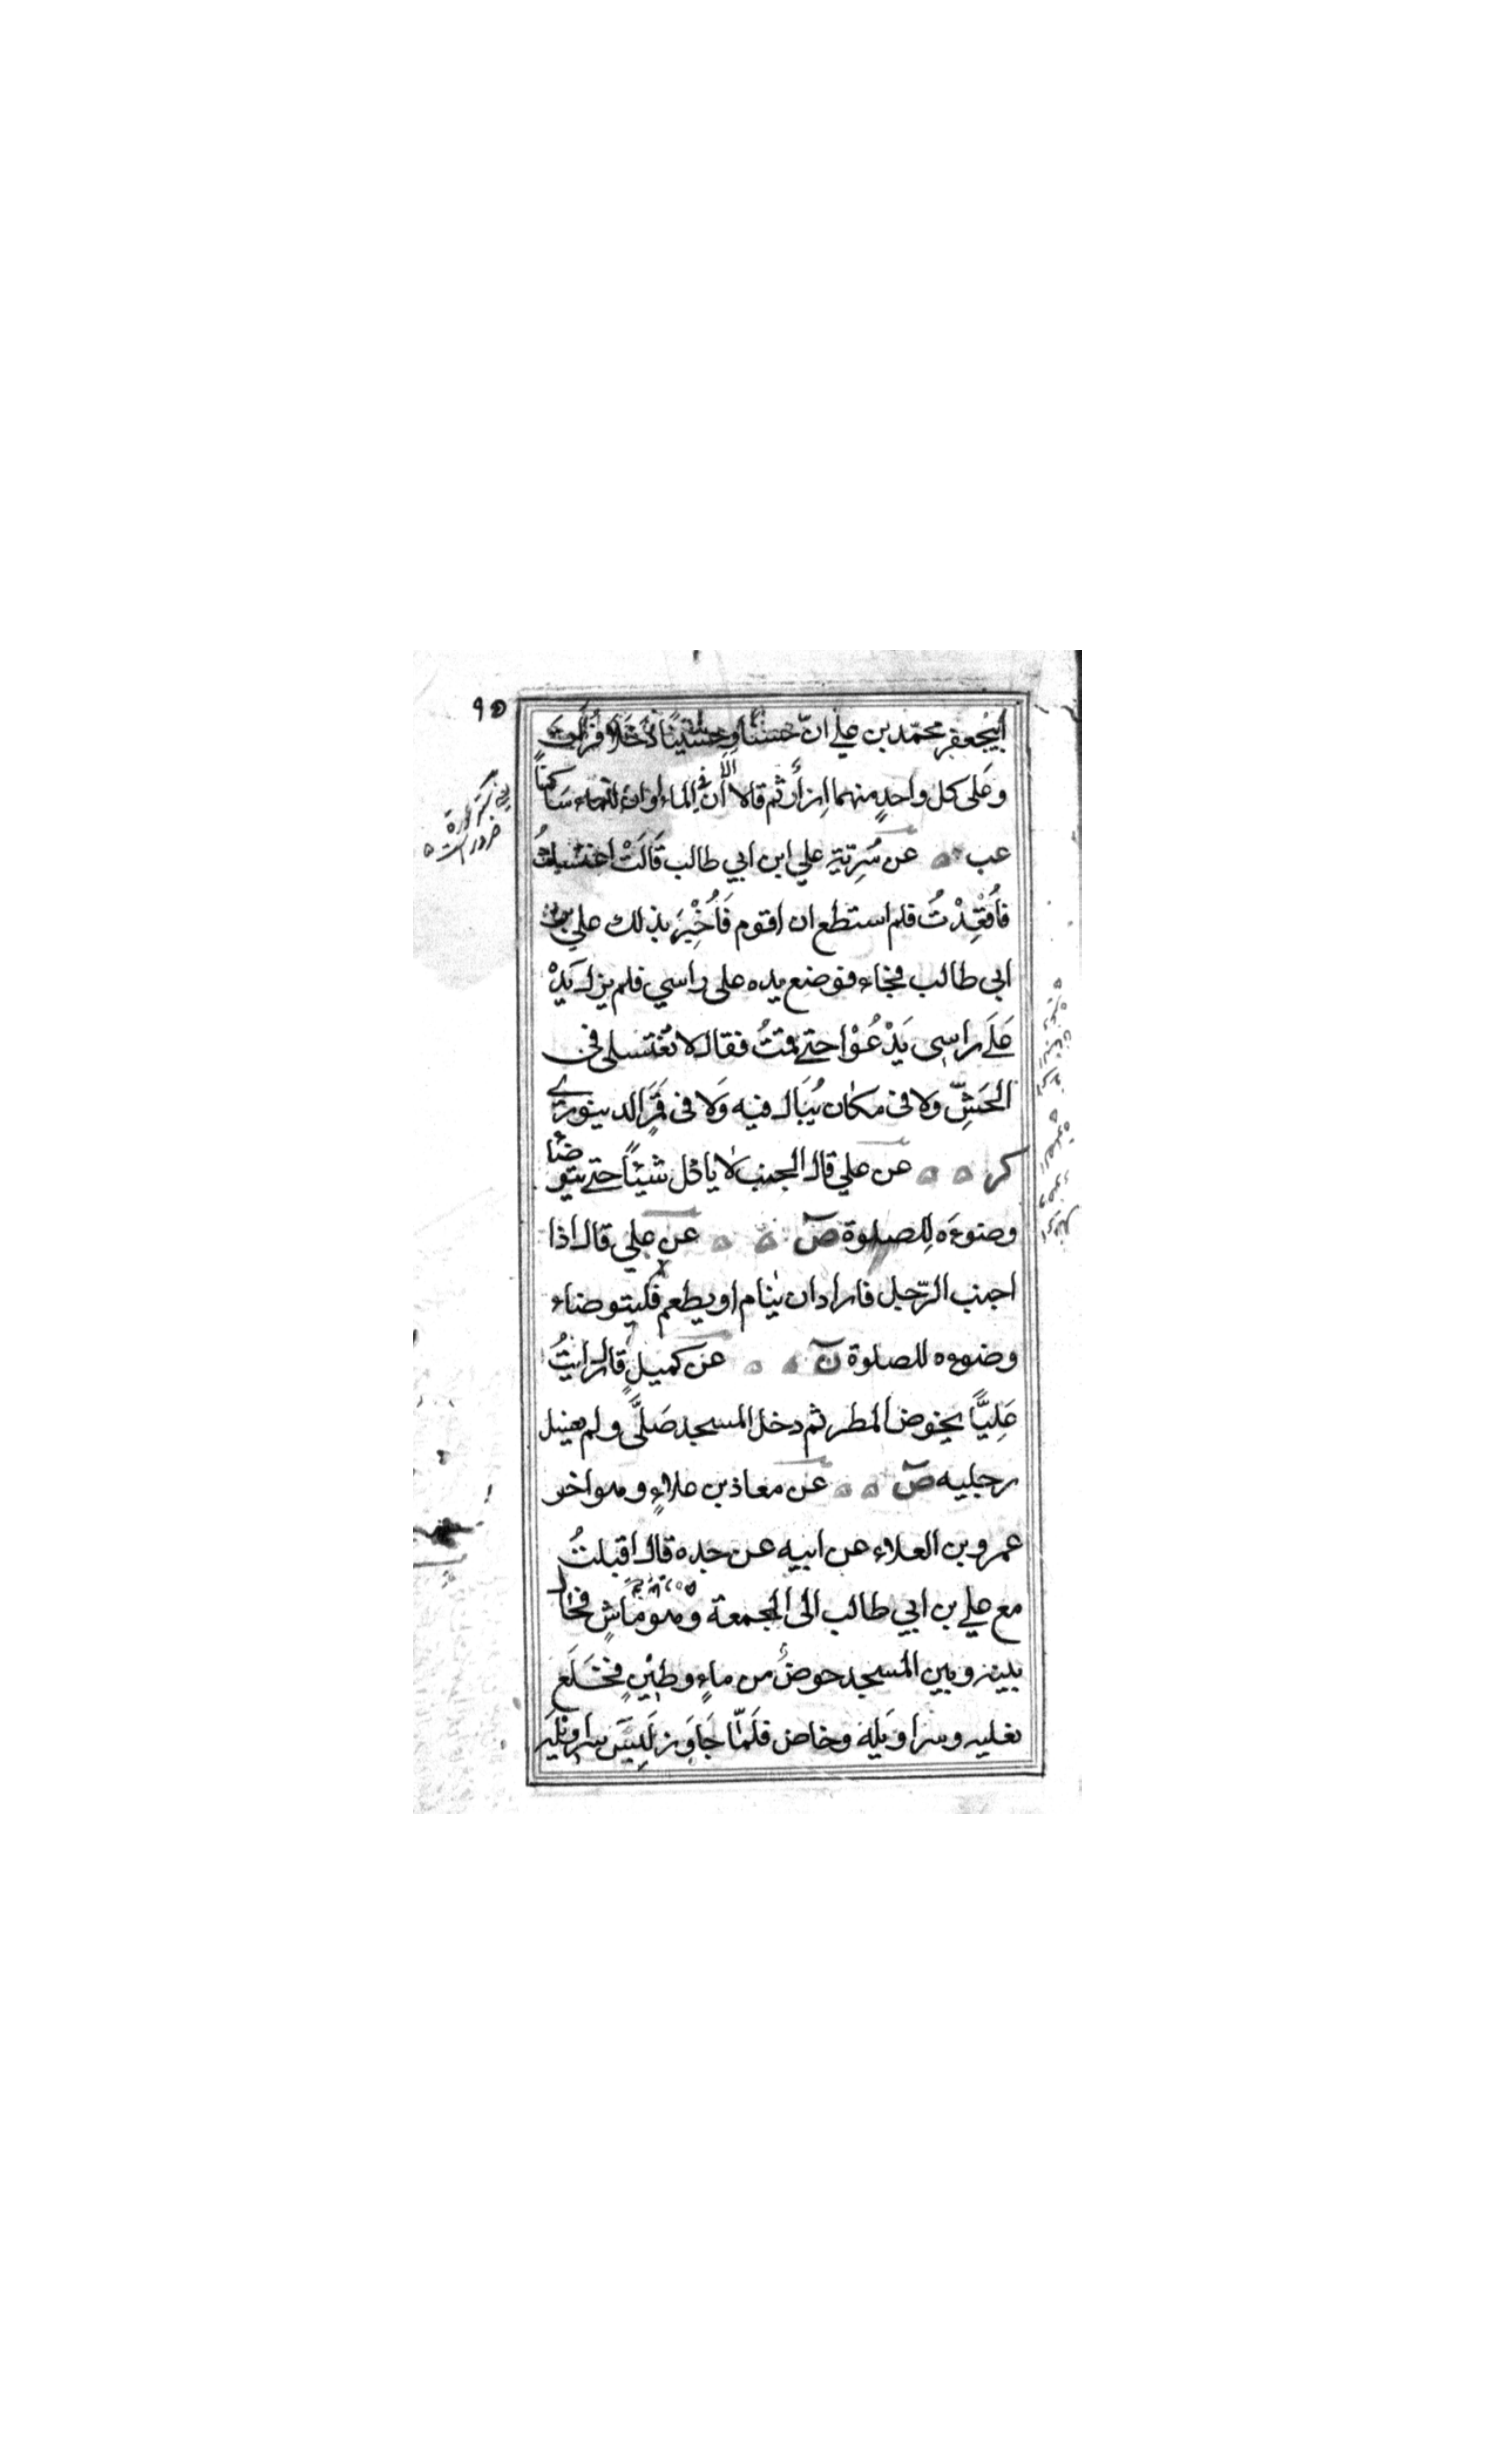 ٩٥
ابيجعفر محمّد بن علي انّ حسنًا وحسينًا دخلا فرات
وعلى كل واحدٍ منهما ازار ثم قالا الا ان في الماء او ان للماء ساكنًا
عب عن سُرِّيّة علي ابن ابي طالب قَالَتْ اغتسلتُ
فاُقْعِدْتُ فلم استطع ان اقوم فَاُخْبِرَ بذلك علي بن
ابى طالب فجاء فوضع يده على راسي فلم يزل يَدْ
عَلَے راسِى يَدْعُوْا حتے قمتُ فقال لا تغتسلى فى
الحَشِّ ولا فى مكان يُبَال فيه وَلَا فى قَمَرٍ الدينورے
كر عن علي قال الجنب لا ياكل شيئًا حتے يتوضا
وضوءَه لِلصلوة ض عن علي قال اذا
اجنب الرّجل فاراد ان ينام او يطعم فليتوضاء
وضوءه للصلوة ن عن كميلٍ قال رايتُ
عَلِيًّا يخوض المطر ثم دخل المسجد صَلَّى ولم يغسل
رجليه ض عن معاذ بن علاءٍ وهو اخو
عمرو بن العلاء عن ابيه عن جده قال اقبلتُ
مع علي بن ابي طالب الى الجمعة وهو مَاشٍ فحال
بينه وبين المسجد حوضٌ من ماءٍ وطِيْنٍ فخَلَعَ
نعليه وسراوَيله وخاض فلَمّا جَاوَز لَبِسَ سراويله